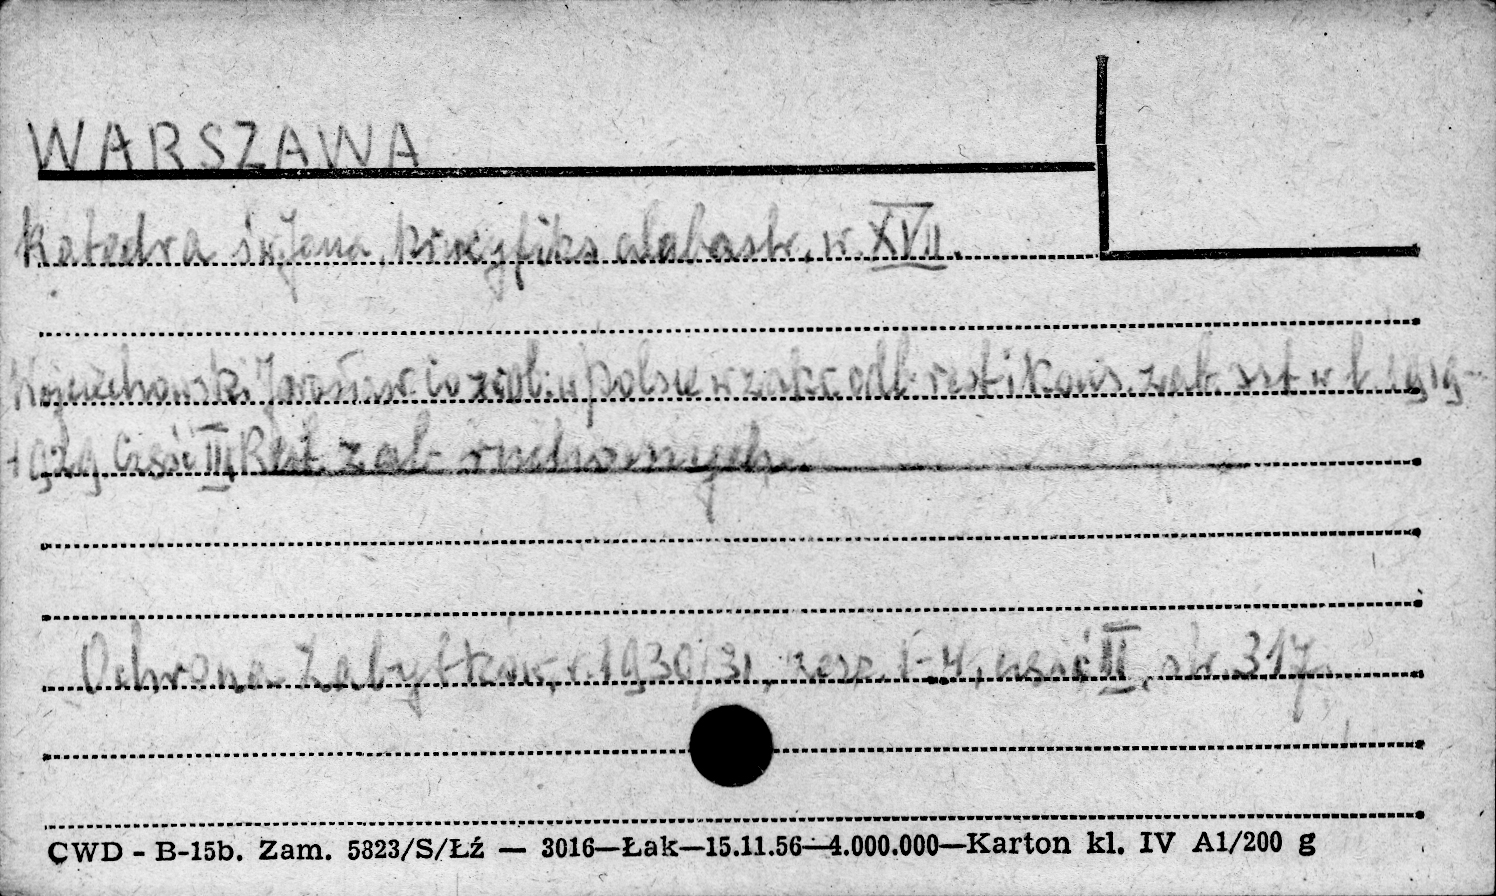 WARSZAWA
Katedra św. Jana, krucyfiks alabastr. w. XVII.
Wojciechowski Jarosław Co zrob. w Polsce w zakr. odb. rest. i kons. zab. szt. w l. 1919-
1929 Część III, Rest. zab. ruchomych.
Ochrona Zabytków, r. 1930/31, zesz. 1-4, część II, str. 317.
CWD - B-15b. Zam. 5823/S/Łź — 3016—Łak—15.11.56—4.000.000—Karton kl. IV A1/200 g